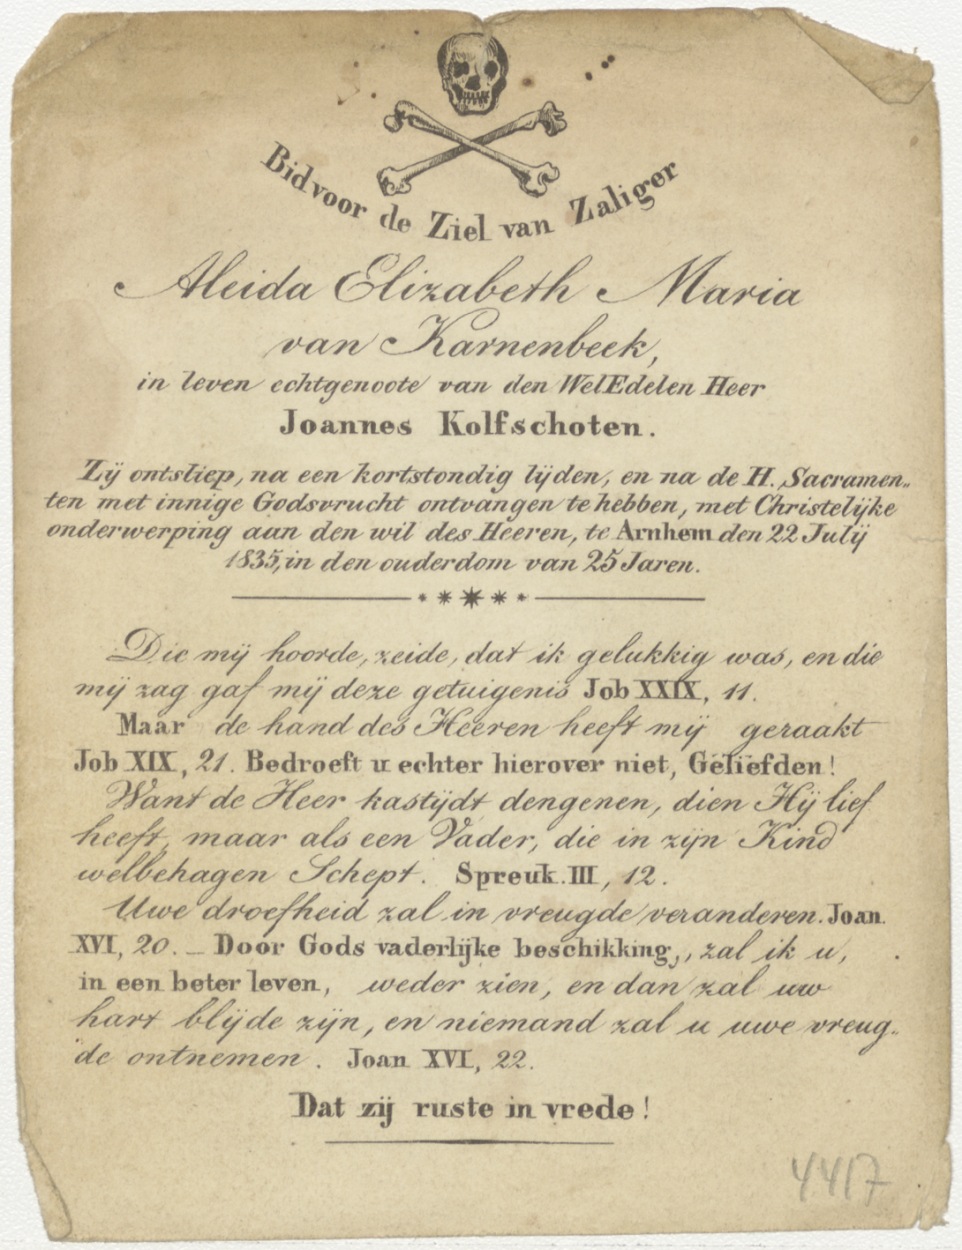 Bid voor de Ziel van Zaliger
Aleida Elizabeth Maria
van Karnenbeek,
in leven echtgenoote van den WelEdelen Heer
Joannes Kolfschoten.
Zij ontsliep, na een kortstondig lijden, en na de H. Sacramen„
ten met innige Godsvrucht ontvangen te hebben, met Christelijke
onderwerping aan den wil des Heeren, te Arnhem den 22 Julij
1835, in den ouderdom van 25 Jaren.
Die mij hoorde, zeide, dat ik gelukkig was, en die
mij zag gaf mij deze getuigenis Job XXIX, 11.
Maar de hand des Heeren heeft mij geraakt
Job XIX, 21. Bedroeft u echter hierover niet, Geliefden!
Want de Heer kastijdt dengenen, dien Hij lief
heeft, maar als een Vader, die in zijn Kind
welbehagen Schept. Spreuk. III, 12.
Uwe droefheid zal in vreugde veranderen. Joan.
XVI, 20. – Door Gods vaderlijke beschikking,, zal ik u,
in een beter leven, weder zien, en dan zal uw
hart blijde zijn, en niemand zal u uwe vreug„
de ontnemen. Joan XVI, 22.
Dat zij ruste in vrede!
4417